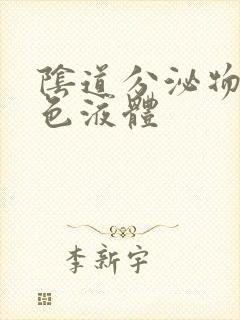 陰道分泌物
色液體
李新宇